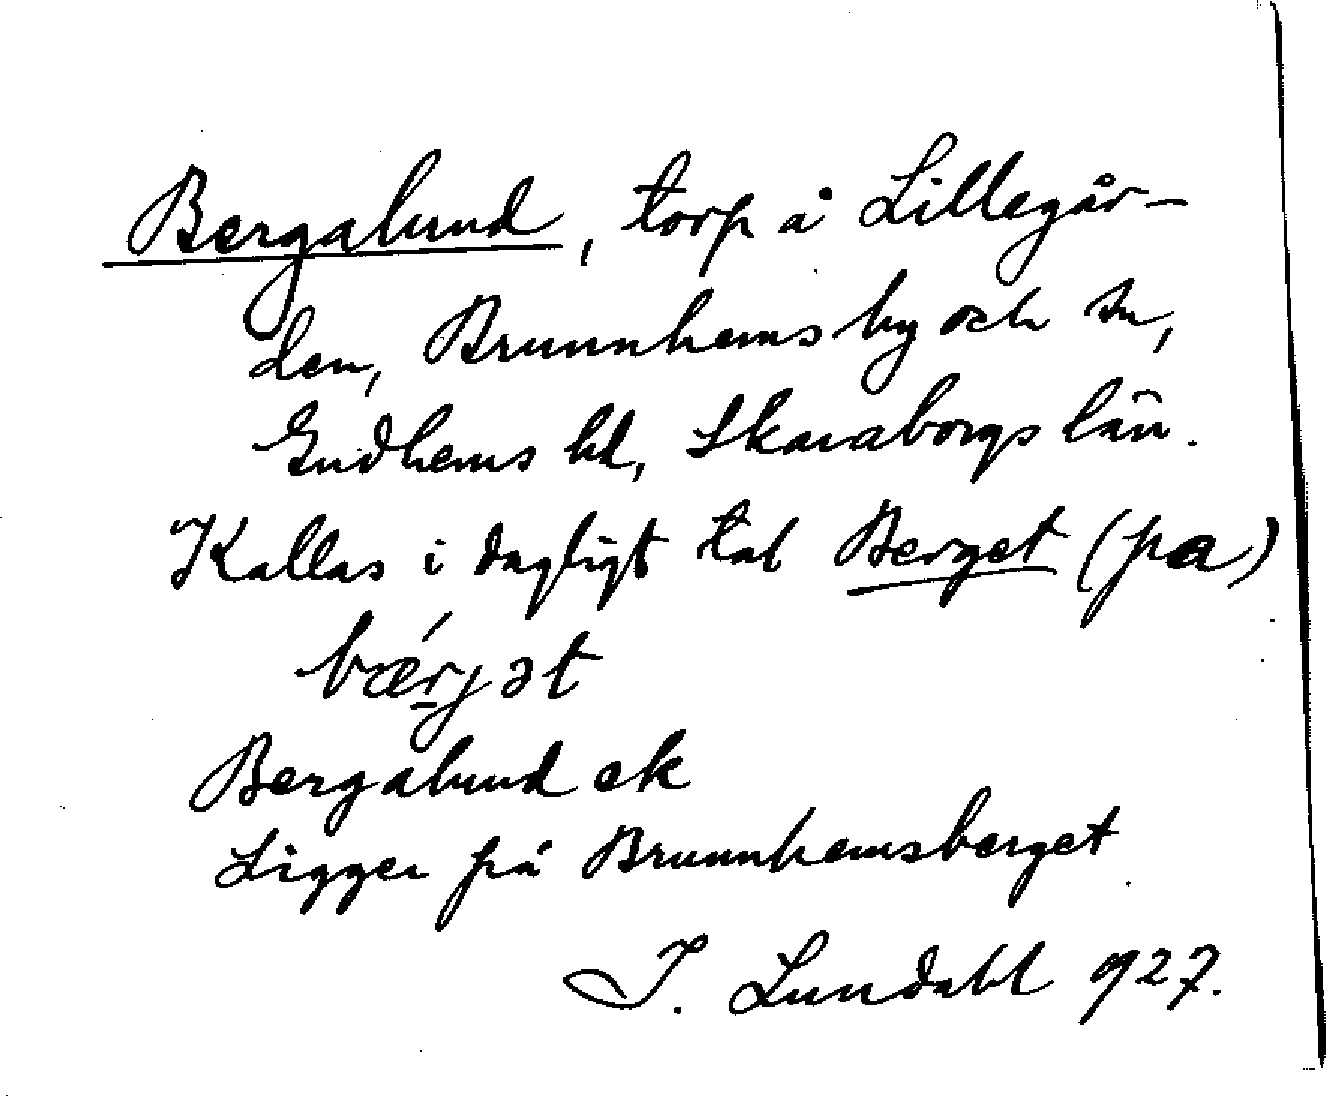 Bergalund, torp å Lillegår-
den, Brunnhems by och sn,
Gudhems hd, Skaraborgs län.
Kallas i dagligt tal Berget (på)
bǽrjət
Bergalund ek
Ligger på Brunnhemsberget
I. Lundahl 927.